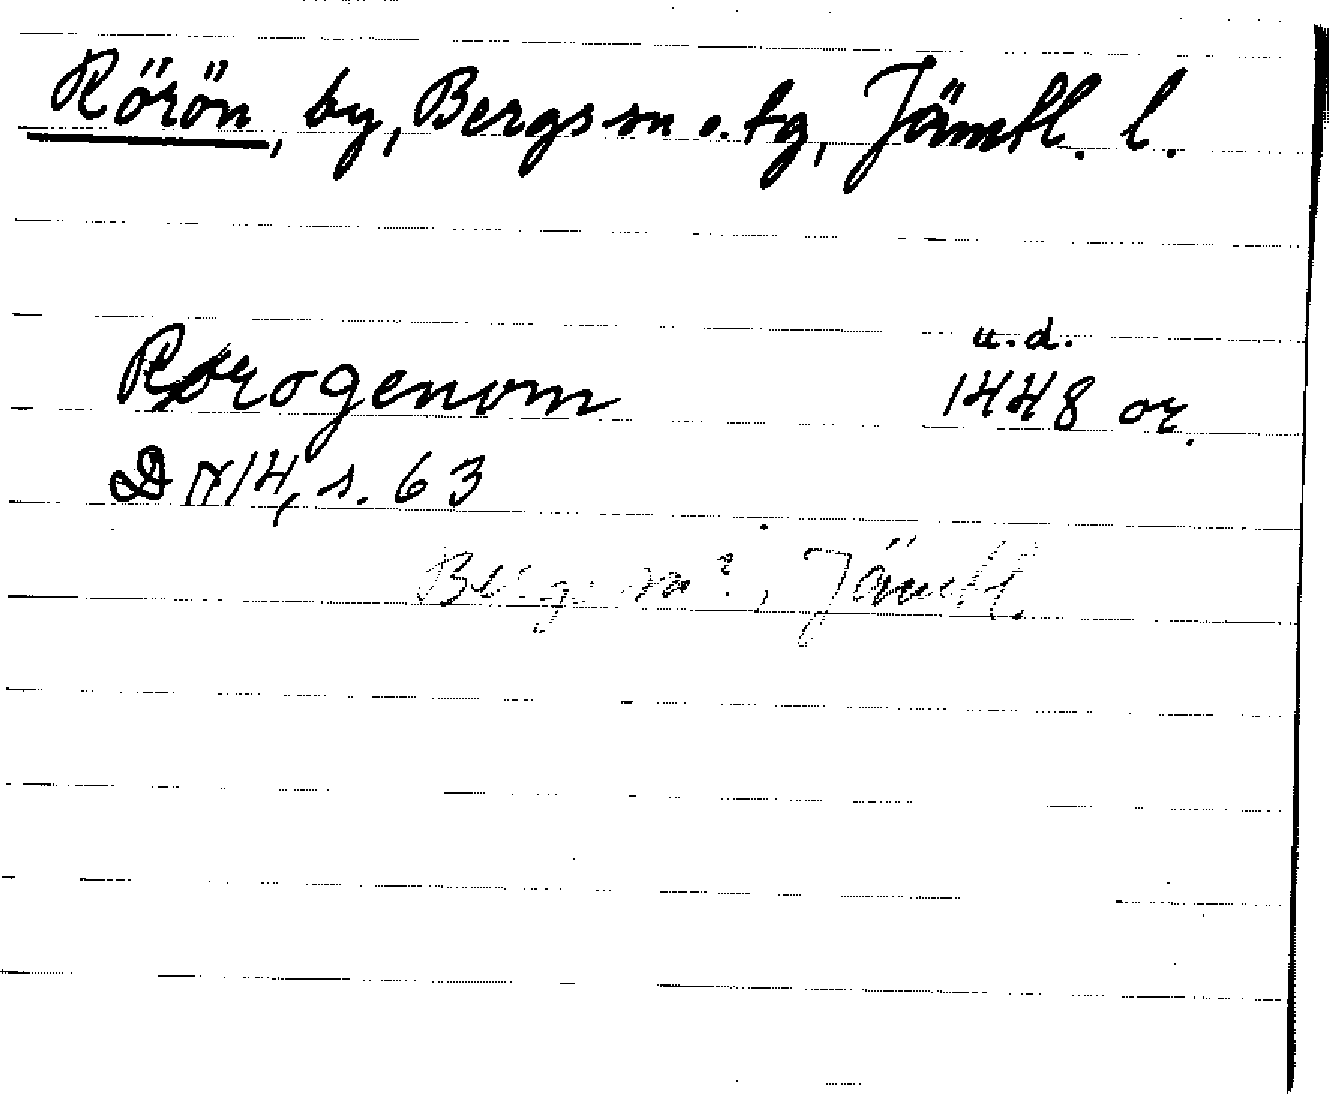 Rörön, by, Bergs sn o. tg, Jämtl. l.
u.d.
Rorogenom 1448 or.
DN 14, s. 63
Bergs sn?, Jämtl.